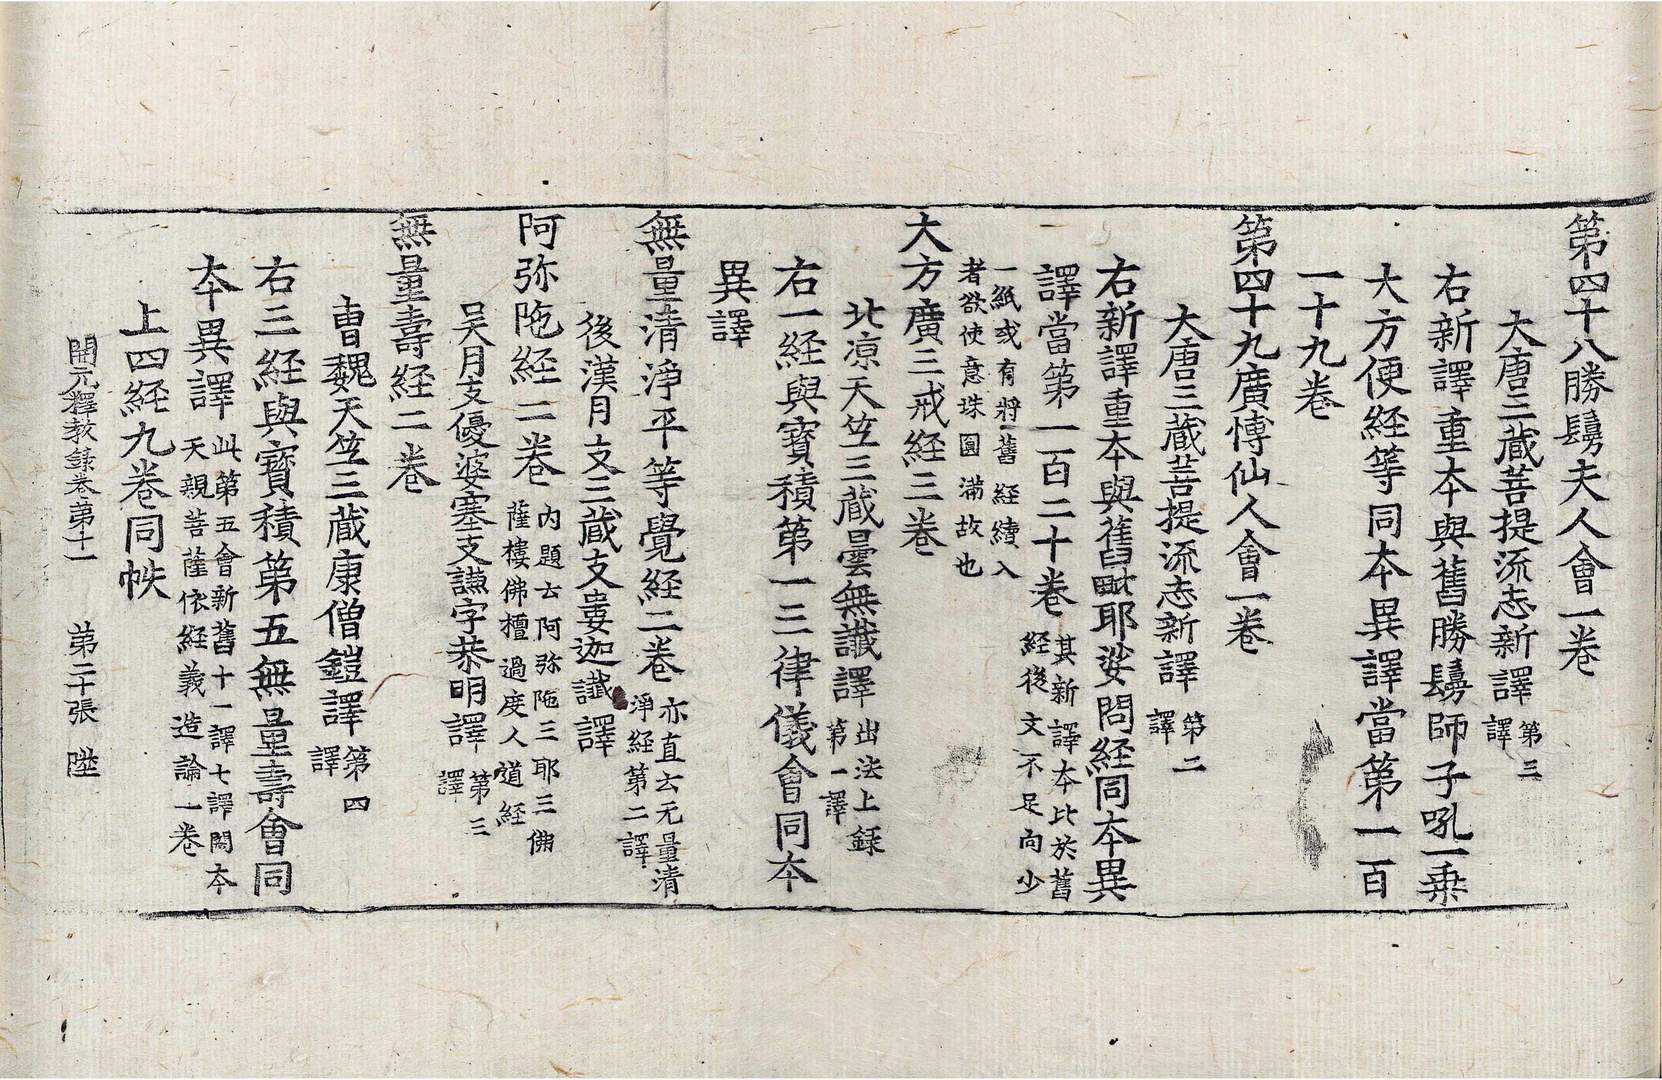 第四十八勝鬘夫人會一卷
大唐三蔵菩提流志新譯第三譯
右新譯重本與舊勝鬘師子吼一乗
大方便経等同本異譯當第一百
一十九卷
第四十九廣愽仙人會一卷
大唐三蔵菩提流志新譯第二譯
右新譯重本與舊毗耶娑問経同本異
譯當第一百二十卷其新譯本比於舊
経後文不足向少
一紙或有將舊経續入
者欲使意珠圓滿故也
大方廣三戒経三卷
北涼天竺三蔵曇無讖譯出法上録
第一譯
右一経與寳積第一三律儀會同本
異譯
無量清淨平等覺経二卷亦直云无量清
淨経第二譯
後漢月支三蔵支婁迦讖譯
阿弥陁経二卷内題云阿弥陁三耶三佛
薩樓佛檀過度人道経
吴月支優婆塞支謙字恭明譯第三
譯
無量壽経二卷
曹魏天竺三蔵康僧鎧譯第四
譯
右三経與寳積第五無量壽會同
本異譯此第五會新舊十一譯七譯闕本
天親菩薩依経義造論一卷
上四経九卷同帙
開元釋教録卷第十一 第二十張 陞